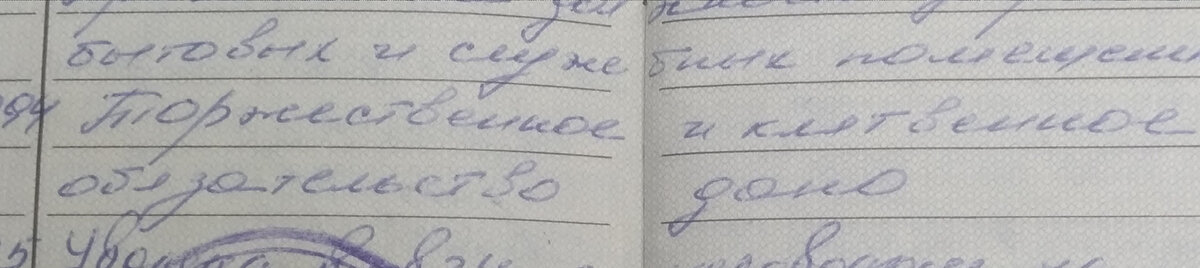 бытовых и служебных помещени
94 Торжественное и клятвенное
обязательство дано
5